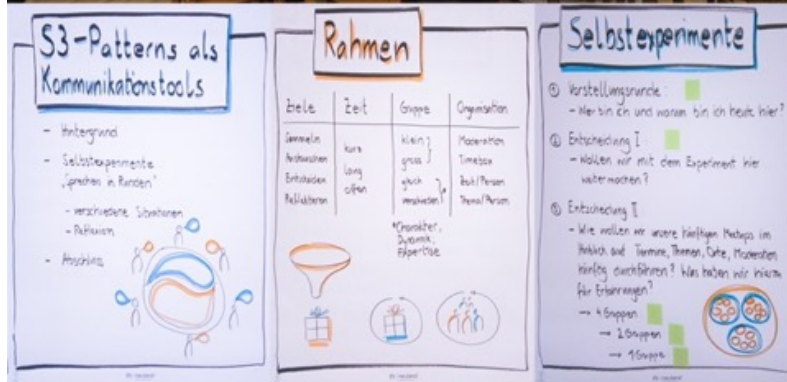 S3-Patterns als
Kommunikationstools
- Hintergrund
- Selbstexperimente
"Sprechen in Runden"
- verschiedene Situationen
- Reflexion
- Abschluss
Rahmen
Ziele Zeit Gruppe Organisation
Sammeln kurz klein Moderation
Austauschen lang gross Timebox
Entscheiden offen gleich Zeit/Person
Reflektieren verschieden Thema/Person
*Charakter,
Dynamik,
Expertise
Selbstexperimente
① Vorstellungsrunde:
- Wer bin ich und warum bin ich heute hier?
② Entscheidung I:
- Wollen wir mit dem Experiment hier
weitermachen?
③ Entscheidung II
- Wie wollen wir unsere künftigen Meetups im
Hinblick auf Termine, Themen, Orte, Moderation
künftig durchführen? Was haben wir hierzu
für Erfahrungen?
→ 4 Gruppen
→ 2 Gruppen
→ 1 Gruppe